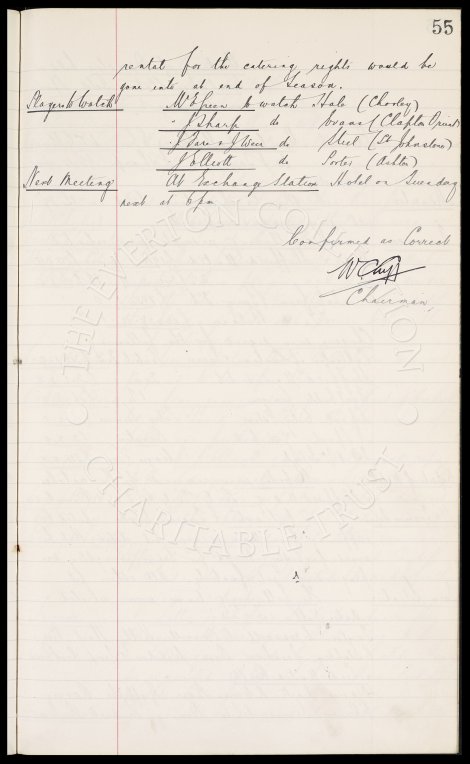 55
rental for the catering rights would be
gone into at end of Season.
Players to Watch Mr Green to watch Hole (Chorley)
" J Sharp do Evans (Clapton Orient)
" J Fare & J Weir do Steel (St Johnstone)
J Elliott do Porter (Ashton)
Next Meeting At Exchange Station Hotel on Tuesday
next at 6 pm
Confirmed as Correct
W C Cuff
Chairman,
THE EVERTON COLLECTION
CHARITABLE TRUST